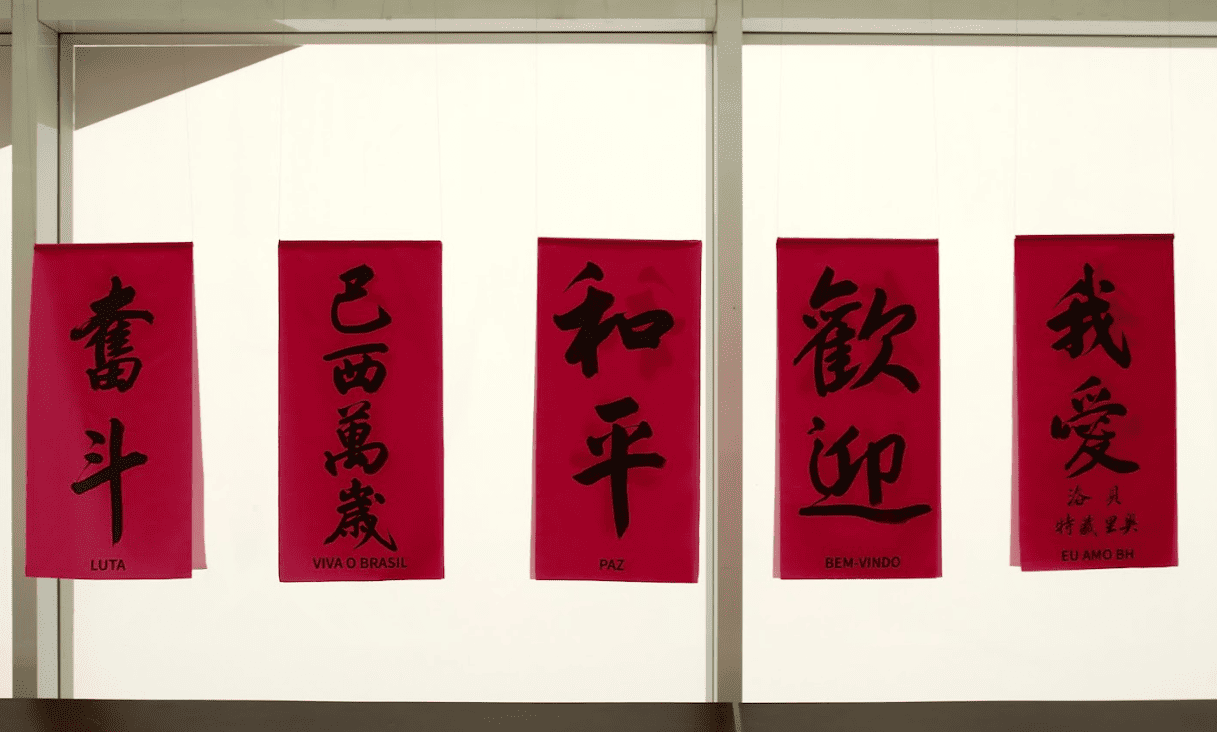 奮
斗
LUTA
巴
西
萬
歲
VIVA O BRASIL
和
平
PAZ
歡
迎
BEM-VINDO
我
愛
貝洛
奧里藏特
EU AMO BH